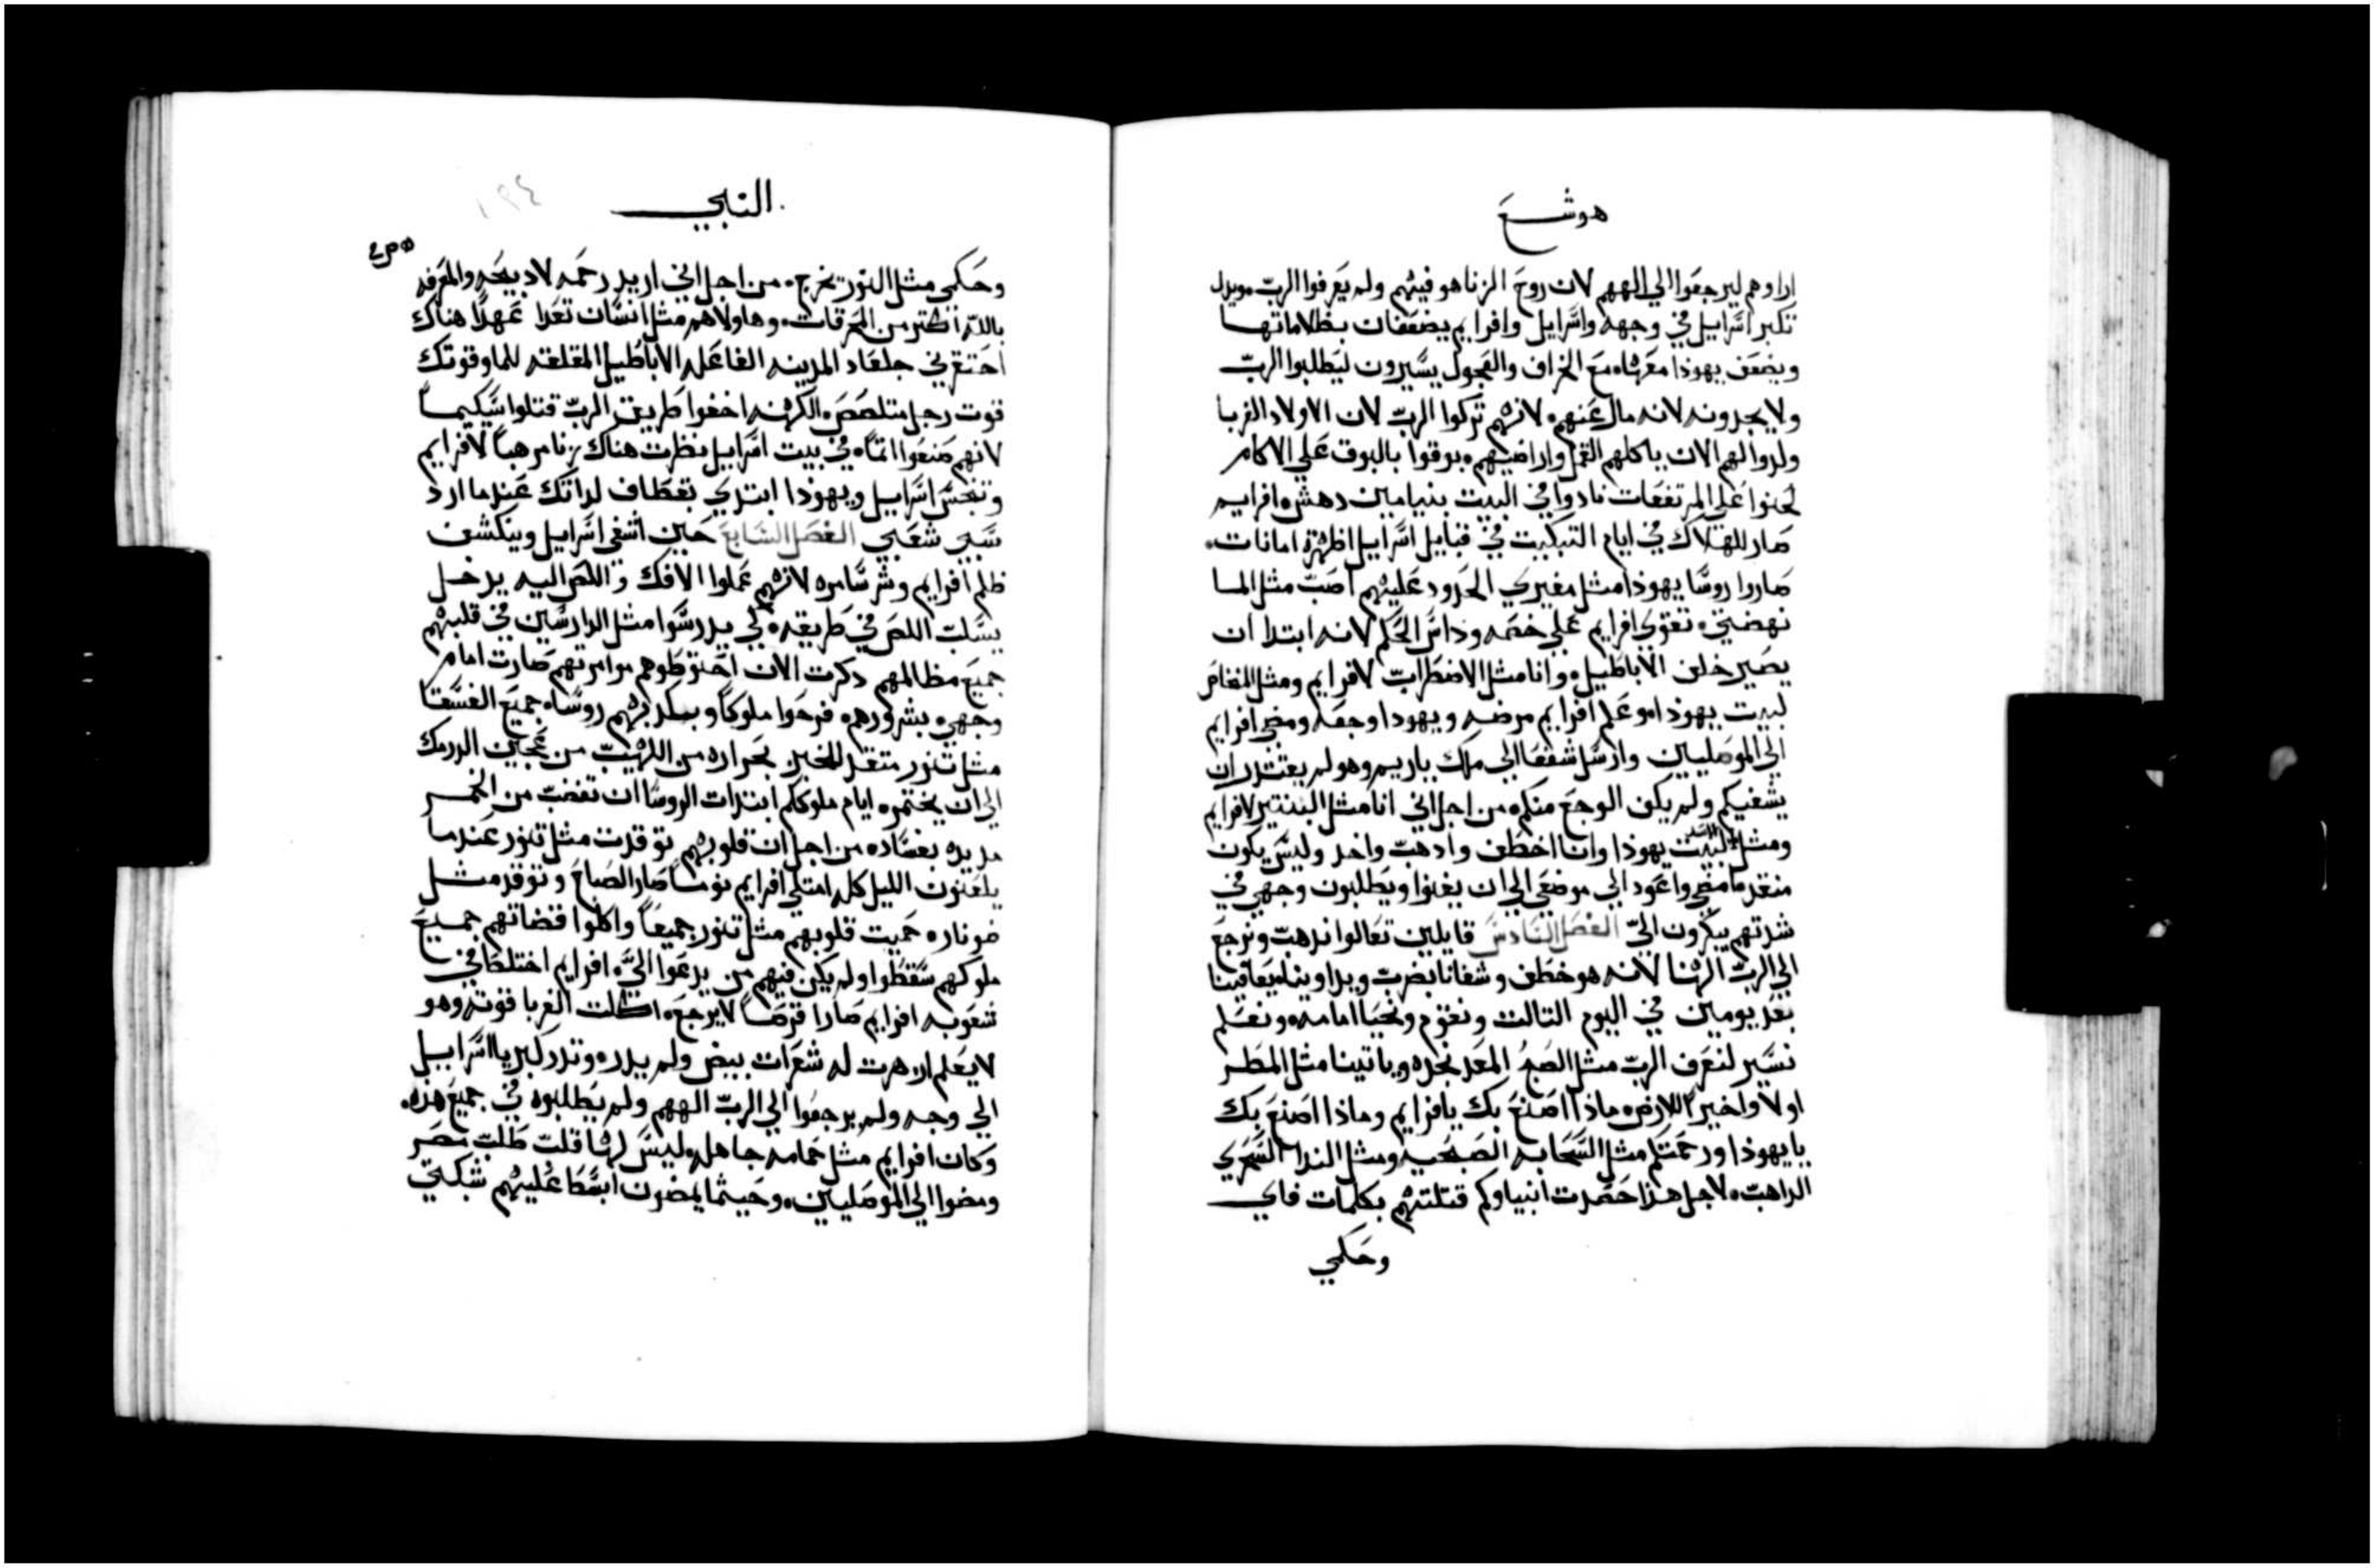 هوشع
اراوهم ليرجعوا الي الههم لان روح الزنا هو فيهم ولم يعرفوا الرب ويدل
تكبر اسرايل في وجهه واسرايل وافرايم يضعفان بظلاماتها
ويضعف يهوذا معهما مع الخراف والعجول يسيرون ليطلبوا الرب
ولا يجدونه لانه مال عنهم لانهم تركوا الرب لان الاولاد الغربا
ولدوا لهم الان ياكلهم القمل واراضيهم بوقوا بالبوق علي الاكام
لحنوا علي المرتفعات نادوا في البيت بنيامين دهش افرايم
صار للهلاك في ايام التبكيت في قبايل اسرايل اظهرة امانات
صاروا روسا يهوذا مثل مغيري الحدود عليهم اصب مثل الما
نهضتي تقوي افرايم علي خصمه وداس الحكم لانه ابتدا ان
يصير خلف الاباطيل وانا مثل الاضطراب لافرايم ومثل المغاص
لبيت يهوذا وعلم افرايم مرضه ويهودا وجعه ومضي افرايم
الي الموصليين وارسل شفعا الي ملك ياريم وهو لم يقتدر ان
يشفيكم ولم يكف الوجع منكم من اجل اني انا مثل الببتير لافرايم
ومثل الاسد لبيت يهوذا وانا اخطف وادهب واخد وليس يكون
منقد ما مضي واعود الي موضعي الي ان يفنوا ويطلبون وجهي في
شدتهم يبكرون الي الفصل السادس قايلين تعالوا ندهب ونرجع
الي الرب الهنا لانه هو خطف وشفانا يضرب ويداوينا يعافينا
بعد يومين في اليوم التالت ونقوم ونحيا امامه ونعلم
نسير لنعرف الرب مثل الصبح المعد نجده وياتينا مثل المطر
اولا واخيرا للارض ماذا اصنع بك يا افرايم وماذا اصنع بك
يا يهوذا ورحمتكم مثل السحابه الصبحيه ومثل الندا السحري
الداهب لاجل هذا حصدت انبياوكم قتلتهم بكلمات فاي
وحكمي
النبي
١٩٤
وحكمي مثل النور تخرج من اجل اني اريد رحمه لا دبيحه والمعرفه
بالله اكتر من المحرقات وهاولاهم مثل انسان تعدا عهدا هناك
احتقرني جلعاد المدينه الفاعله الاباطيل المقلقه للما وقوتك
قوت رجل متلصص الكهنه اخفوا طريق الرب قتلوا شكيما
لانهم صنعوا اتما في بيت اسرايل نظرت هناك زنا مرهبا لافرايم
وتنجس اسرايل ويهوذا ابتدي تقطاف لداتك عندما ارد
سبي شعبي الفصل السابع حين اشفي اسرايل وينكشف
ظلم افرايم وشر سامره لانهم عملوا الافك واللص اليه يدخل
يسلب اللص في طريقه لكي يدرسوا مثل الدارسين في قلبهم
جميع مظالمهم دكرت الان احتوطوهم موامرتهم صارت امام
وجهي بشرورهم فرحوا ملوكا وبكدبهم روسا جميع الفسقا
مثل تنور متقد للخبز بحراره من اللهيب من عجين الدرمك
الي ان يختمر ايام ملوكم ابتدات الروسا ان تغضب من الخمر
مد يده بفساده من اجل ان قلوبهم توقدت مثل تنور عندما
يلعنون الليل كله امتلي افرايم نوما صار الصباح وتوقد مثل
ضو ناره حميت قلوبهم مثل تنور جميعا واكلوا قضاتهم جميع
ملوكهم سقطوا ولم يكن فيهم من يدعوا الي افرايم اختلط في
شعوبه افرايم صارا قرصا لا يرجع اكلت الغربا قوته وهو
لا يعلم ازهرت له شعرات بيض ولم يدر وتدد كبريا اسرايل
الي وجه ولم يرجعوا الي الرب الههم ولم يطلبوه في جميع هذه
وكان افرايم مثل حمامه جاهله ليس لها قلت طلب مصر
ومضوا الي الموصليين وحيثما يمضون ابسطا عليهم شبكتي